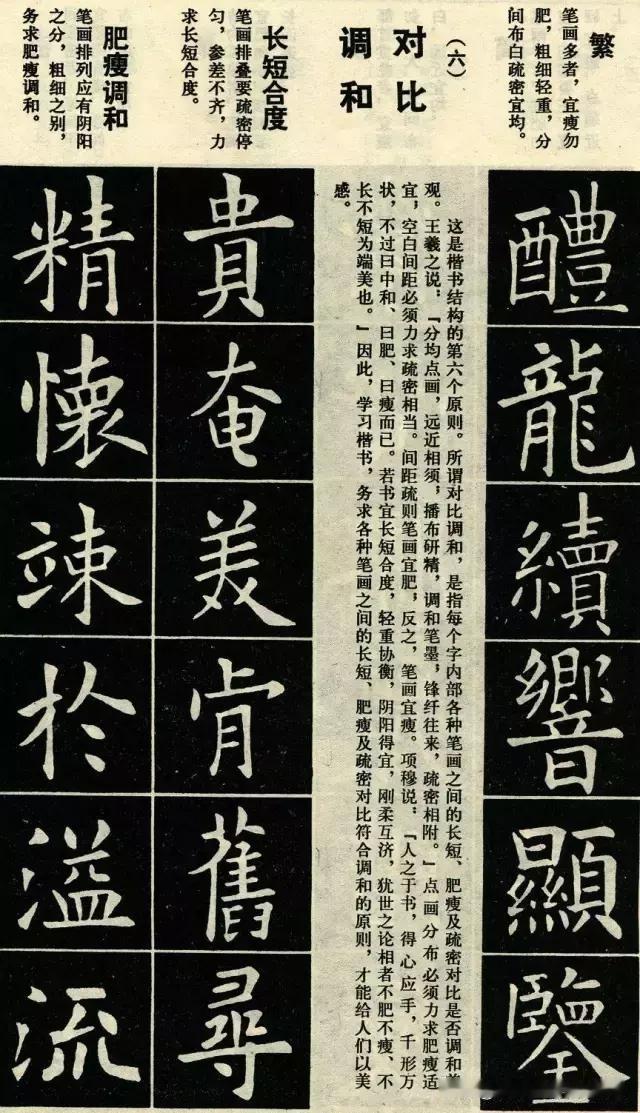 繁
笔画多者，宜瘦勿
肥，粗细轻重，分
间布白疏密宜均。
醴
龍
續
響
顯
鑒
（六）
对比
调和
这是楷书结构的第六个原则。所谓对比调和，是指每个字内部各种笔画之间的长短、肥瘦及疏密对比是否调和美
观。王羲之说：「分均点画，远近相须，播布研精，调和笔墨，锋纤往来，疏密相附。」点画分布必须力求肥瘦适
宜，空白间距必须力求疏密相当。间距疏则笔画宜肥，反之，笔画宜瘦。项穆说：「人之于书，得心应手，千形万
状，不过曰中和、曰肥、曰瘦而已。若书宜长短合度，轻重协衡，阴阳得宜，刚柔互济，犹世之论相者不肥不瘦、不
长不短为端美也。」因此，学习楷书，务求各种笔画之间的长短、肥瘦及疏密对比符合调和的原则，才能给人们以美
感。
长短合度
笔画排叠要疏密停
匀，参差不齐，力
求长短合度。
貴
奄
美
肯
舊
尋
肥瘦调和
笔画排列应有阴阳
之分，粗细之别，
务求肥瘦调和。
精
懐
竦
於
溢
流